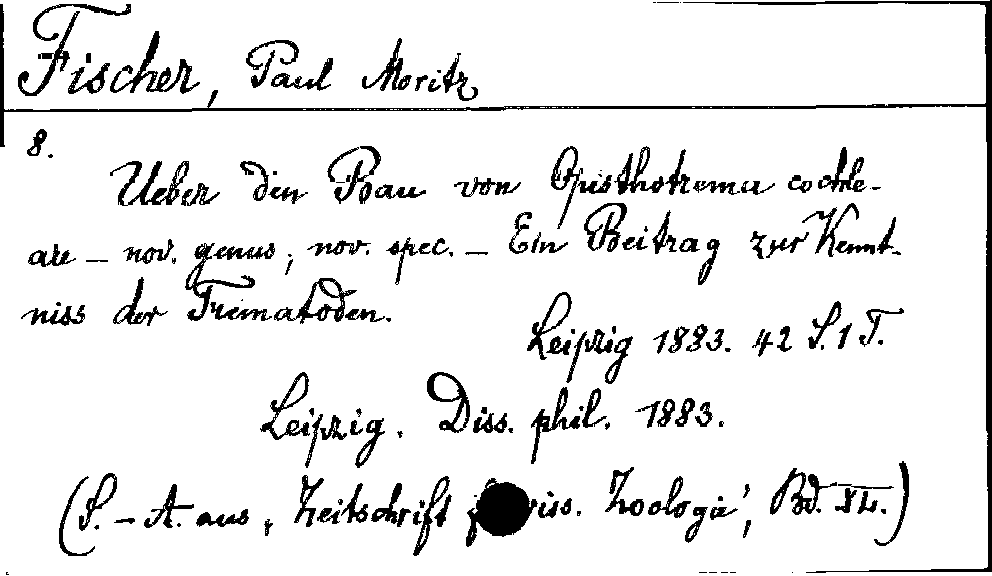 Fischer, Paul Moritz
8.
Ueber den Bau von Opisthotrema cochle-
are – nov. genus, nov. spec. – Ein Beitrag zur Kennt-
niss der Trematoden.
Leipzig 1883. 42 S. 1 T.
Leipzig. Diss. phil. 1883.
(S.-A. aus ‚Zeitschrift f. wiss. Zoologie', Bd. XL.)